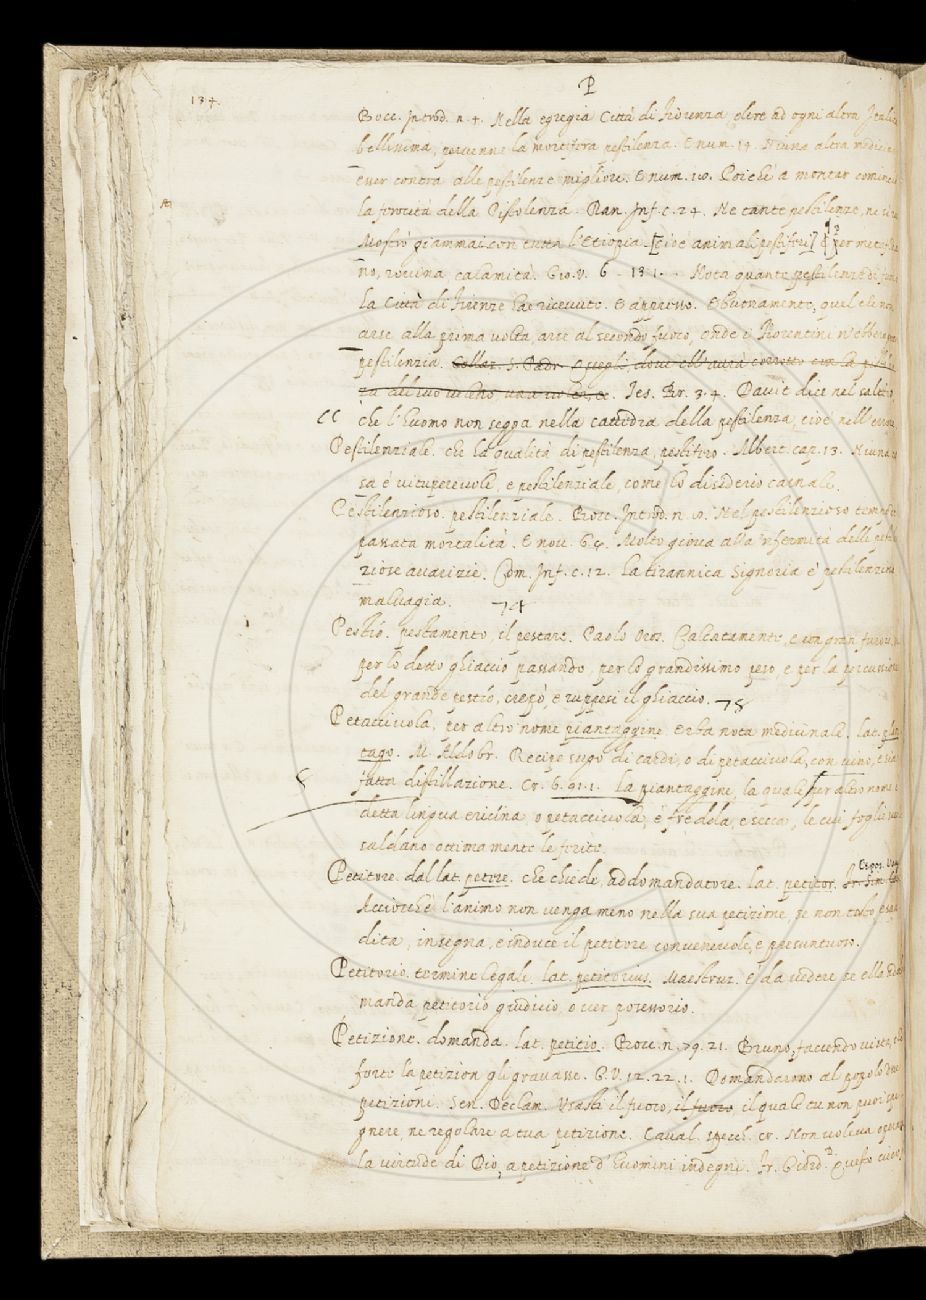 P
134.
Bocc. Introd. n. 4. Nella egregia Città di Fiorenza, oltre ad ogni altra Italica
bellissima, pervenne la mortifera pestilenza. E num. 19. Niuna altra medicina
esser contra alle pestilenze migliore. E num. 20. Poichè a montar cominciò
la ferocità della Pistolenza. Dan. Inf. c. 24. Ne tante pestilenze, ne sì
Mostrò giammai con tutta l'Etiopia [cioè animali pestiferi] § per
no, rovina calamita. Gio. V. 6 - 13 1. Nota quante pestilenze di fuoco
la Città di Firenze ha ricevuto. E appresso. E buonamente, quel che non
arse alla prima volta, arse al secondo fuoco, onde i Fiorentini n'ebbero
pestilenzia. Collaz. S. Padr.
Tes. Br. 3. 4. Davit dice nel saltero
che l'Huomo non segga nella cattedra della pestilenza, cioè nell'errore
Pestilenziale. che ha qualità di pestilenza, pestifero. Albert. cap. 13. Niuna co
sa è vituperevole, e pestilenziale, come lo disiderio carnale.
Pestilenzioso. pestilenziale. Bocc. Introd. n. Nel pestilenzioso tempo
passata mortalità. E nov. Molto giova alla infermità delle pesti
ziose avarizie. Com. Inf. c. 12. La tirannica Signoria è pestilenziosa
malvagia. 74
Pestio. pestamento, il pestare. Paolo Oros. Calcatamente, e con gran furore
per lo detto ghiaccio passando, per lo grandissimo peso, e per la percussione
del grande pestio, crepò, e ruppesi il ghiaccio. 75
Petacciuola, per altro nome piantaggine. Erba nota medicinale. lat. plan
tago. M. Aldobr. Recipe sugo di cardi, o di petacciuola, con vino, e sia
fatta distillazione. Cr. 6. 91. 1. La piantaggine, la quale per altro nome è
detta lingua arietina, o petacciuola, è fredda, e secca, le cui foglie
saldano ottimamente le ferite.
Petitore. dal lat. petere. che chiede, addomandatore. lat. petitor.
Acciocchè l'animo non venga meno nella sua petizione, se non tosto, esau
dita, insegna, e induce il petitore convenevole, e presuntuoso.
Petitorio. termine legale. lat. petitorius. Maestruz. È da vedere se ella ad
manda petitorio giudicio, o ver possessorio.
Petizione. domanda. lat. petitio. Bocc. n. 79. 21. Bruno, facendo vista, che
forte la petizion gli gravasse. G. V. 12. 22. 1. Domandarono al popolo
petizioni. Sen. Declam. Usasti il fuoco, il fuoco il quale tu non puoi spe
gnere, ne regolare a tua petizione. Caval. specch. cr. Non voleva operare
la virtude di Dio, a petizione d'Huomini indegni. Fr. Giord. Questo